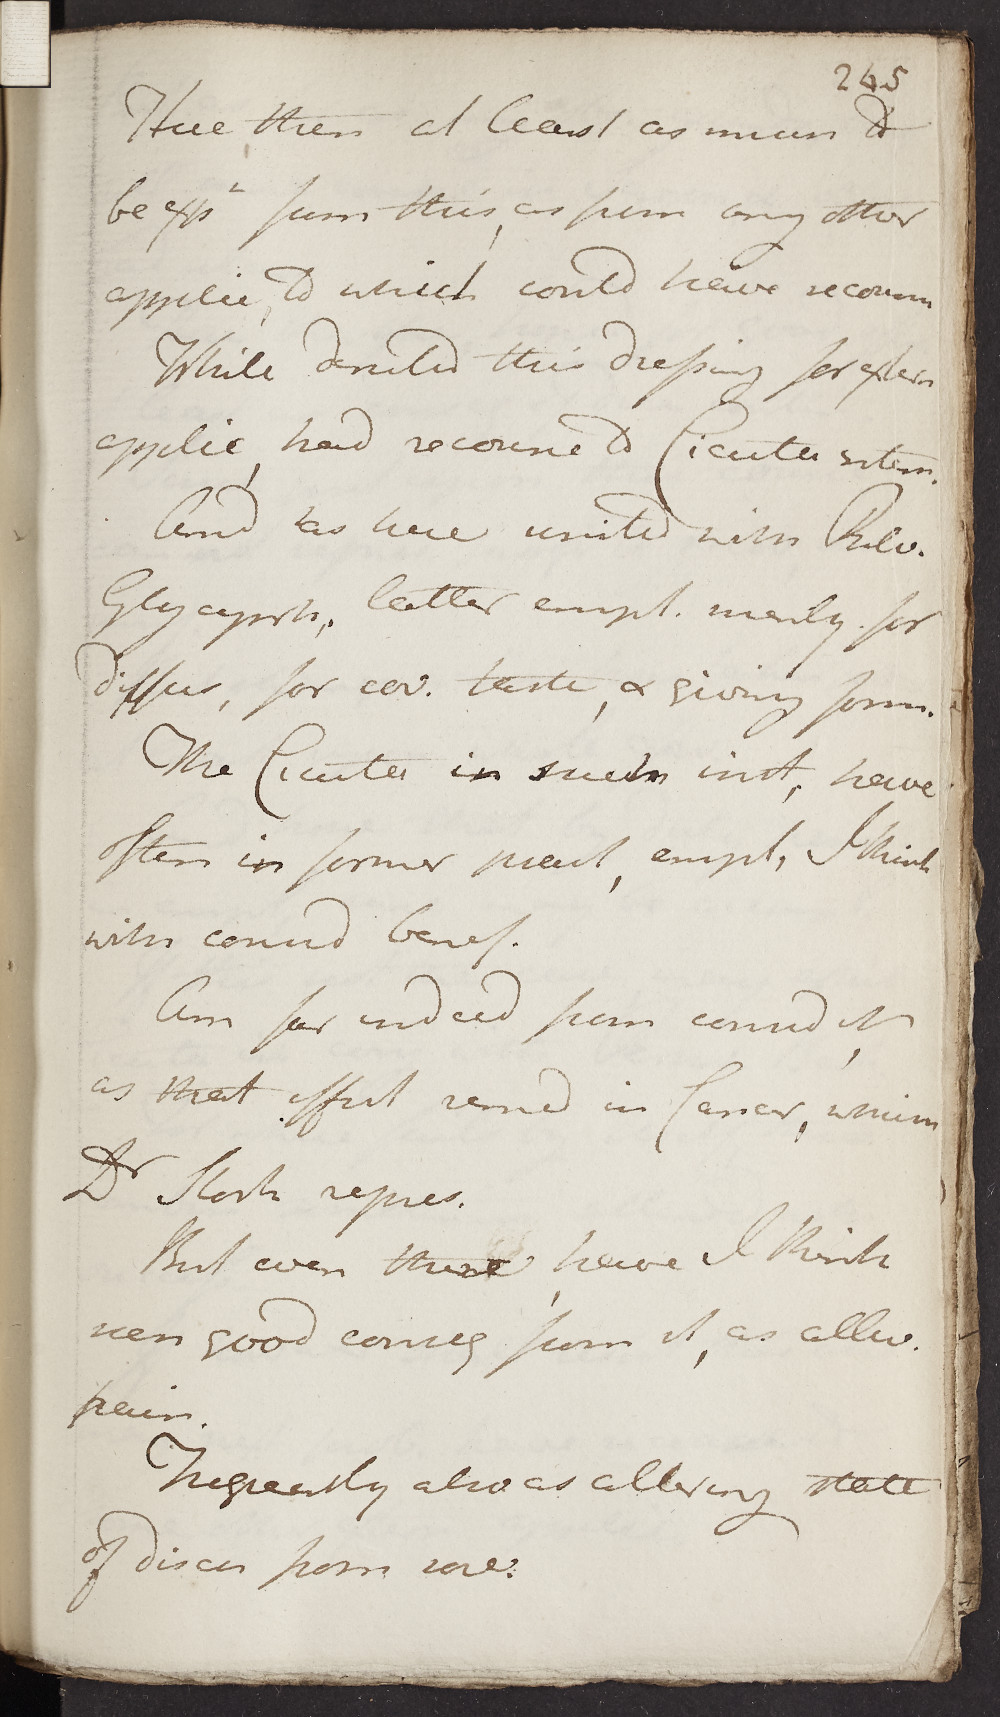 245
Here then at least as much to
be expd from this, as from any other
applic, to which could have recourse
While direited this dressing for extern
applic, had recourse to Cicuta intern.
And as here united with Pulv.
Glycyrrh, latter empl. merely for
diffus, for cov. taste, & giving form.
The Cicuta in such inst, have
often in former pract, empl, I think
with consid benef.
Am far indeed from consid it,
as that effect remed in Cancer, which
Dr Stork repres.
But even there, have I think
seen good conseq from it, as allev.
pain.
Frequently also as altering state
of disch from sore.